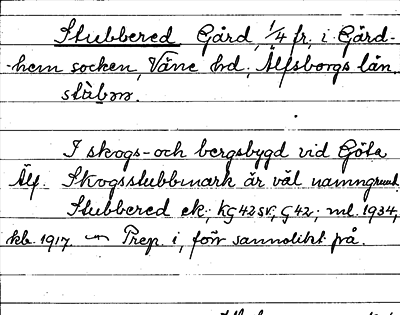 Stubbered Gård, 1/4 fr. i Gård-
-hem socken, Väne hd, Älfsborgs län.
stùbm.
I skogs- och bergsbygd vid Göta
Älf. Skogsstubbmark är väl namngrund.
Stubbered ek; KG42 sv; G42; ml. 1934,
kb. 1917. Prep. i, förr sannolikt på.